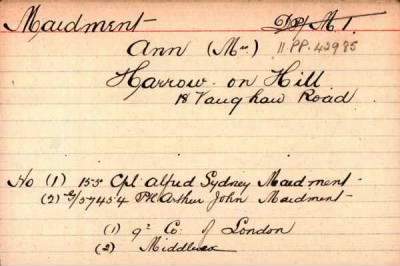 Maidment D.P./M.T.
Ann (Mrs) 11.P.P. 42985
Harrow - on Hill
18 Vaughan Road
No (1) 155 Cpl Alfred Sydney Maidment
(2) G/57454 Pte Arthur John Maidment
(1) 9th Co. of London
(2) Middlesex